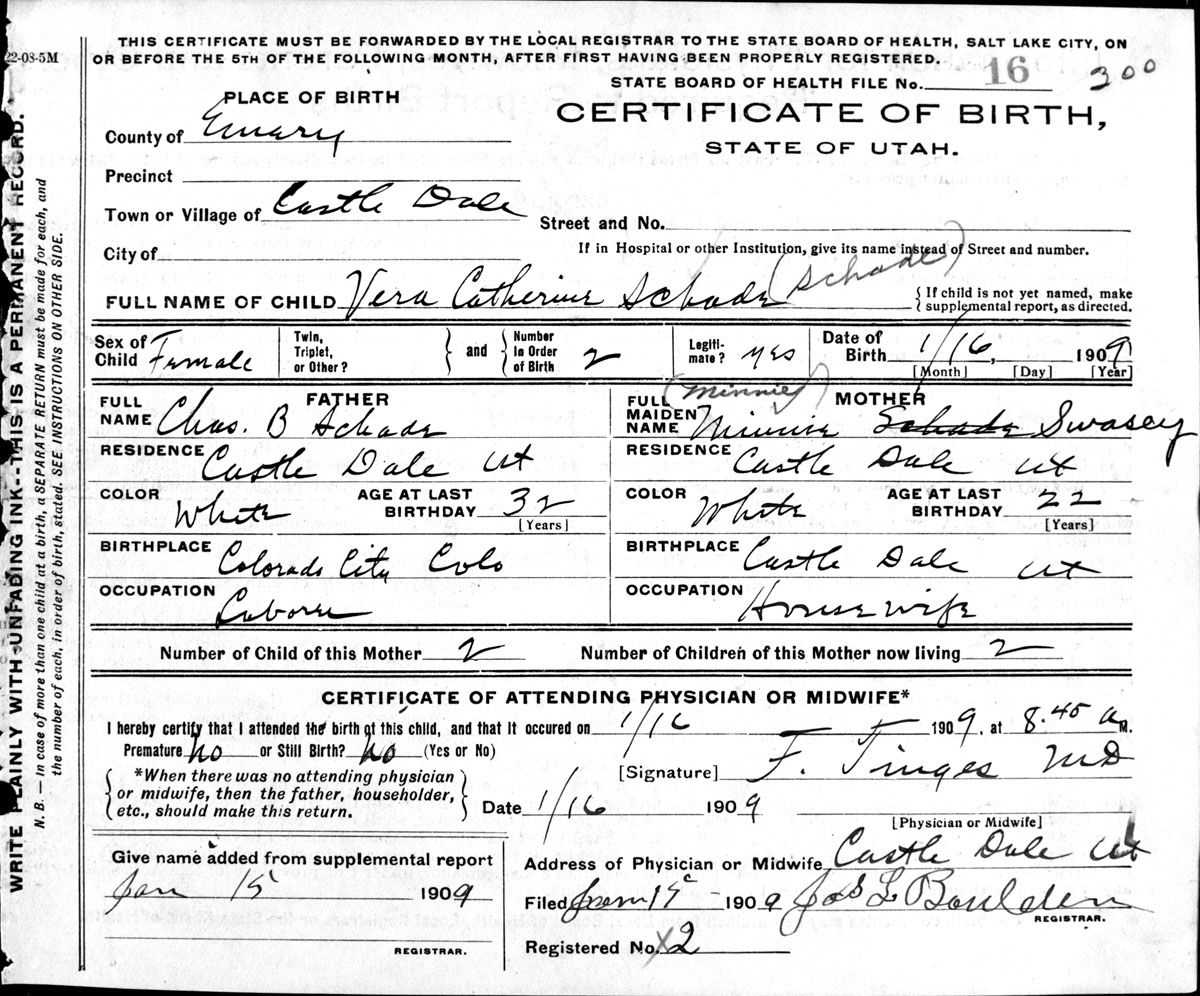 22-08-5M
THIS CERTIFICATE MUST BE FORWARDED BY THE LOCAL REGISTRAR TO THE STATE BOARD OF HEALTH, SALT LAKE CITY, ON
OR BEFORE THE 5TH OF THE FOLLOWING MONTH, AFTER FIRST HAVING BEEN PROPERLY REGISTERED.
STATE BOARD OF HEALTH FILE No. 16 300
PLACE OF BIRTH
CERTIFICATE OF BIRTH,
STATE OF UTAH.
County of Emary
Precinct
Town or Village of Castle Dale
Street and No.
City of
If in Hospital or other Institution, give its name instead of Street and number.
FULL NAME OF CHILD Vera Catherine Schade (Schade)
{ If child is not yet named, make
supplemental report, as directed.
Sex of Child Female
Twin, Triplet, or Other? } and { Number in Order of Birth 2
Legiti-mate? yes
Date of Birth 1/16, 1909
[Month] [Day] [Year]
FATHER
FULL NAME Chas. B Schade
RESIDENCE Castle Dale Ut
COLOR White AGE AT LAST BIRTHDAY 32
[Years]
BIRTHPLACE Colorado City Colo
OCCUPATION Laborer
MOTHER
(Minnie)
FULL MAIDEN NAME Minnie Schade Swasey
RESIDENCE Castle Dale Ut
COLOR White AGE AT LAST BIRTHDAY 22
[Years]
BIRTHPLACE Castle Dale Ut
OCCUPATION Housewife
Number of Child of this Mother 2 Number of Children of this Mother now living 2
CERTIFICATE OF ATTENDING PHYSICIAN OR MIDWIFE*
I hereby certify that I attended the birth of this child, and that it occured on 1/16 1909, at 8.45 a M.
Premature No or Still Birth? No (Yes or No)
{ *When there was no attending physician
or midwife, then the father, householder,
etc., should make this return. }
[Signature] F. Tinges MD
Date 1/16 1909
[Physician or Midwife]
Give name added from supplemental report
Jan 15 1909
REGISTRAR.
Address of Physician or Midwife Castle Dale Ut
Filed 1909 Boulden
REGISTRAR.
Registered No. X2
WRITE PLAINLY WITH UNFADING INK--THIS IS A PERMANENT RECORD.
N. B. — In case of more than one child at a birth, a SEPARATE RETURN must be made for each, and
the number of each, in order of birth, stated. SEE INSTRUCTIONS ON OTHER SIDE.